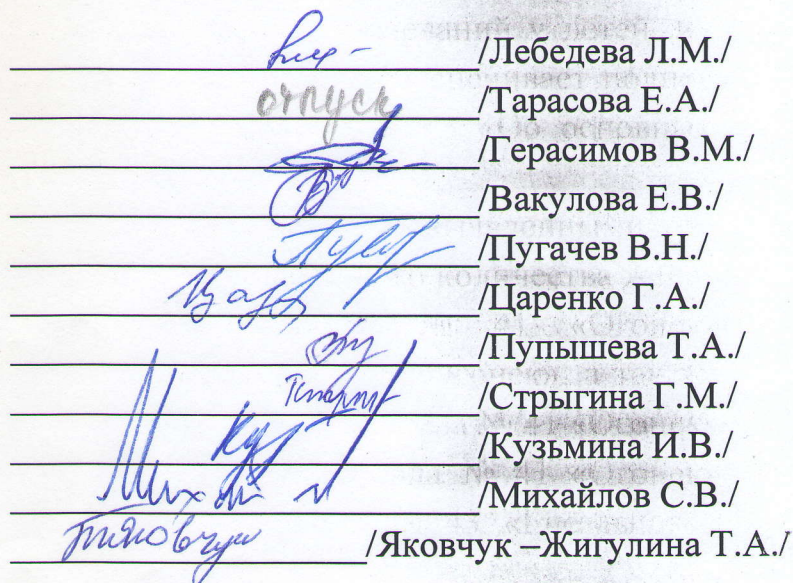 /Лебедева Л.М./
отпуск /Тарасова Е.А./
/Герасимов В.М./
/Вакулова Е.В./
/Пугачев В.Н./
/Царенко Г.А./
/Пупышева Т.А./
/Стрыгина Г.М./
/Кузьмина И.В./
/Михайлов С.В./
/Яковчук –Жигулина Т.А./